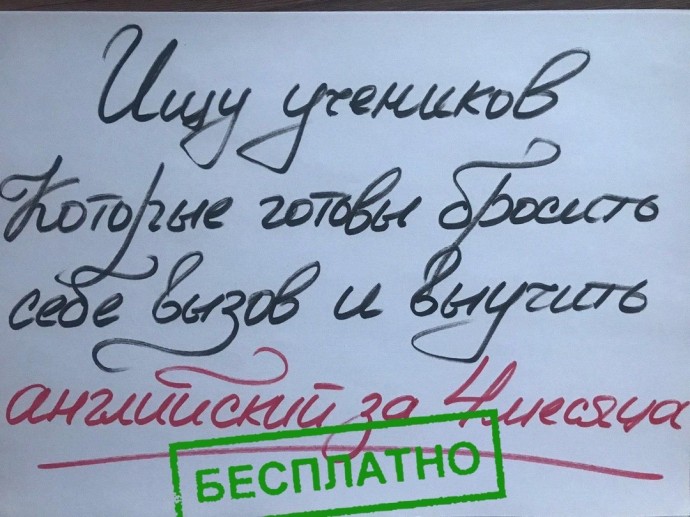 Ищу учеников
Которые готовы бросить
себе вызов и выучить
английский за 4 месяца
БЕСПЛАТНО